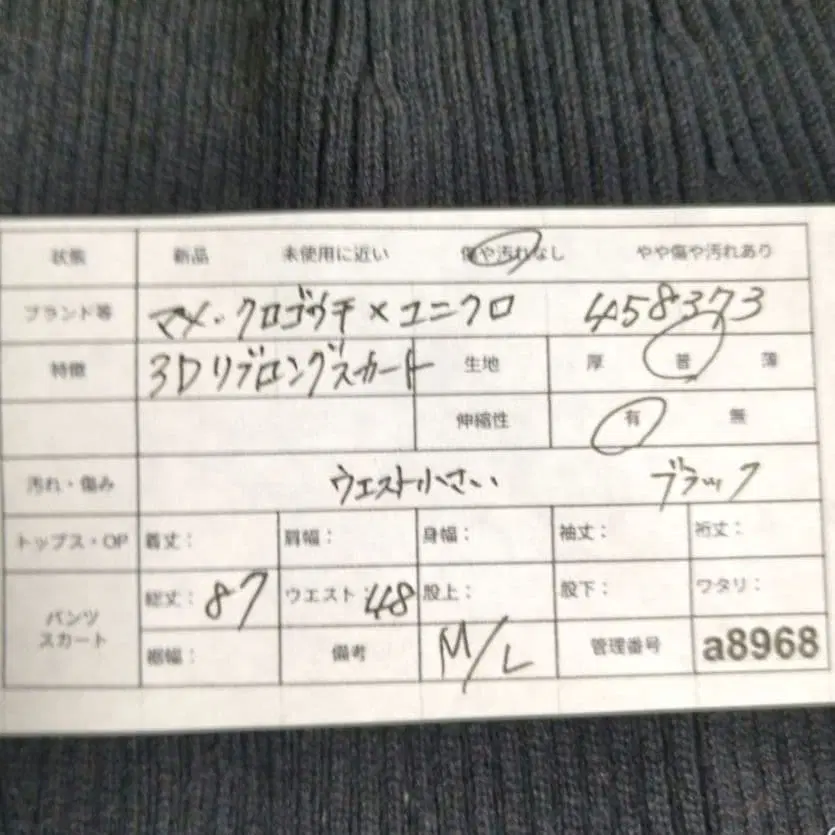 状態 新品 未使用に近い 傷や汚れなし やや傷や汚れあり
ブランド等 マメ・クロゴウチ×ユニクロ 458373
特徴 3Dリブロングスカート 生地 厚 普 薄
伸縮性 有 無
汚れ・傷み ウエスト小さい ブラック
トップス・OP 着丈: 肩幅: 身幅: 袖丈: 裄丈:
パンツ スカート 総丈:87 ウエスト:48 股上: 股下: ワタリ:
裾幅: 備考 M/L 管理番号 a8968